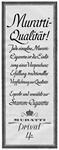 Muratti-
Qualität!
Jede einzelne Muratti-
Cigarette ist die Einlö-
sung eines Versprechens:
Erfüllung traditioneller
Verpflichtung zur Qualität.
Erprobt und erwählt zur
Stamm-Cigarette
MURATTI
privat
4₰